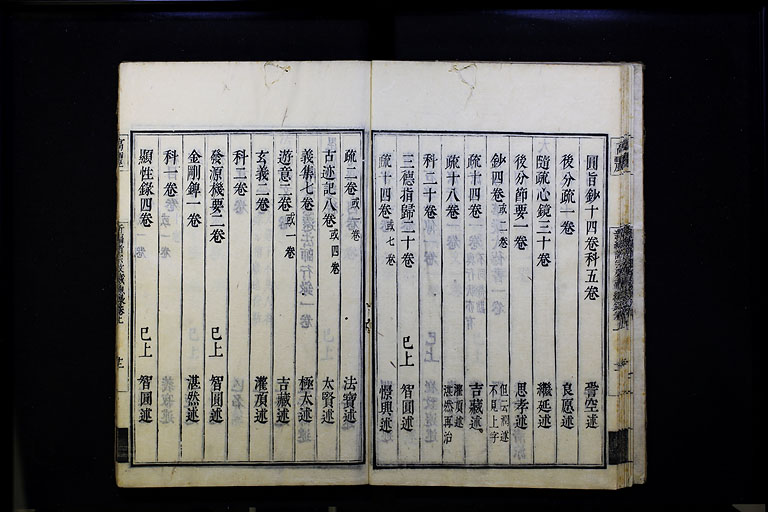 圓旨鈔十四卷科五卷 晉空述
後分疏一卷 良愿述
隨疏心鏡三十卷 繼延述
後分節要一卷 思孝述
鈔四卷或二卷 但云澗述不見上字
疏十四卷 吉藏述
疏十八卷 灌頂述湛然再治
科二十卷
三德指歸二十卷 已上 智圓述
疏十四卷或七卷 憬興述
疏二卷或一卷 法寶述
古迹記八卷或四卷 太賢述
義集七卷 極太述
遊意二卷或一卷 吉藏述
玄義二卷 灌頂述
科二卷
發源機要二卷 已上 智圓述
金剛錍一卷 湛然述
科一卷
顯性錄四卷 已上 智圓述